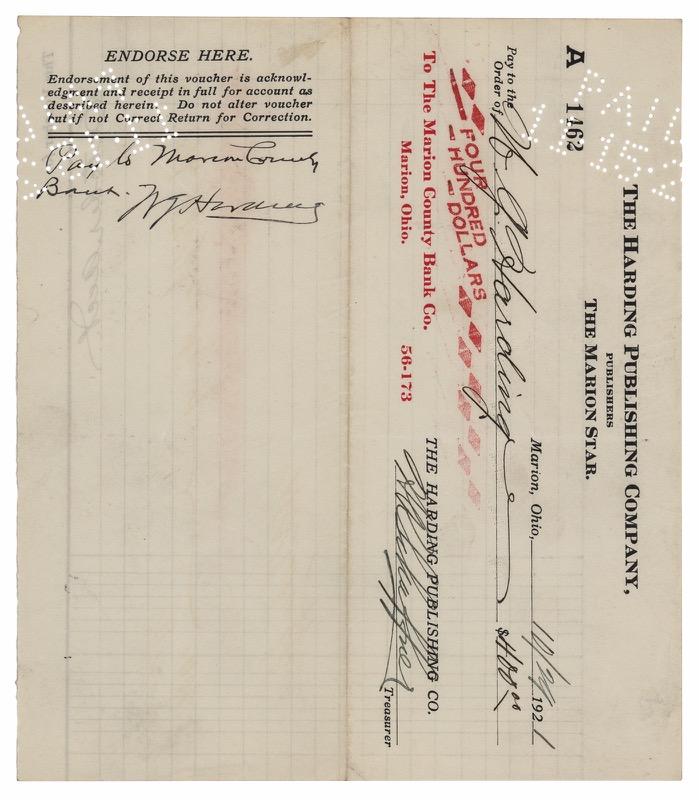 ENDORSE HERE.
Endorsement of this voucher is acknowl-
edgment and receipt in full for account as
described herein. Do not alter voucher
but if not Correct Return for Correction.
Pay to Marion County
Bank.
W G Harding
THE HARDING PUBLISHING COMPANY,
PUBLISHERS
THE MARION STAR.
A 1462
Marion, Ohio, 10/24 1921
Pay to the
Order of W. G. Harding $400.00
FOUR
HUNDRED
DOLLARS
To The Marion County Bank Co.
Marion, Ohio. 56-173
THE HARDING PUBLISHING CO.
Treasurer